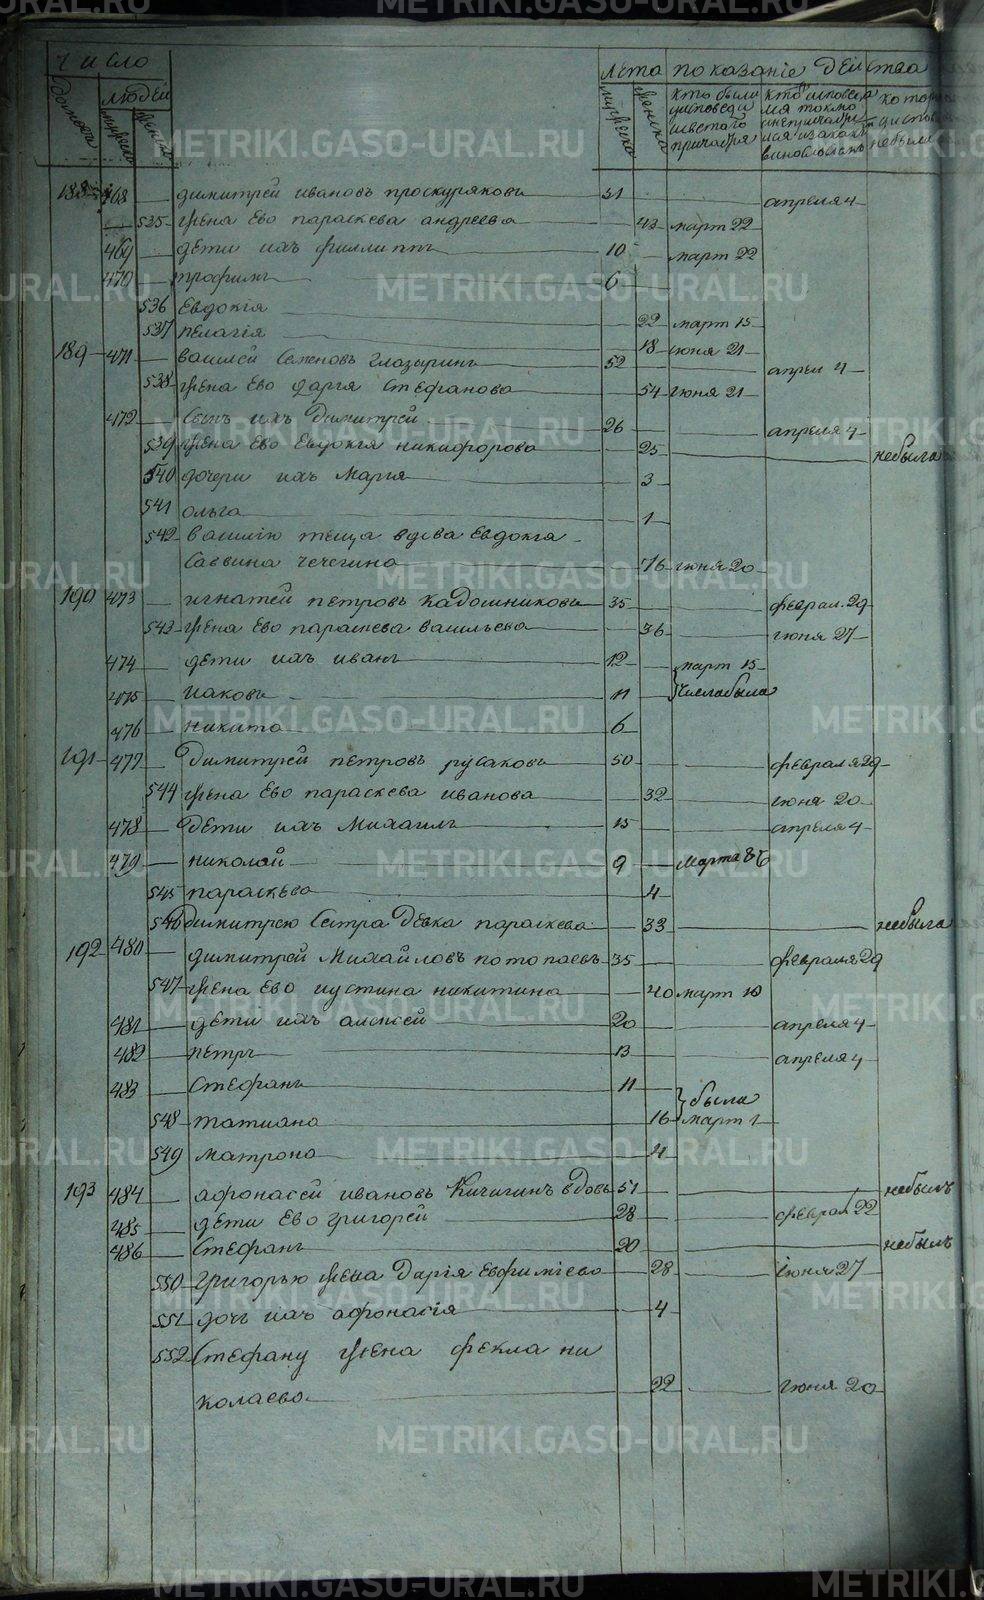 число лета показанiе действа
домовъ людей мужеска женска кто были исповеди исвятаго причастия кто исповеда лся токмо инепричасти лся изакак вин небыли
188 468 димитрей ивановъ проскуряковъ 51 апреля 4
535 жена Ево параскева андреева 43 март 22
469 дети ихъ филлиппъ 10 март 22
470 трофимъ 6
536 Евдокiя 22 март 15
537 пелагiя 18 июня 21
189 471 василей Семеновъ глазыринъ 52 апрел 4
538 жена Ево дарiя Стефанова 54 июня 21
472 Сынъ ихъ димитрей 26 апреля 4
539 жена Ево Евдокiя никифорова 25 небыла
540 дочери ихъ Марiя 3
541 ольга 1
542 василiю теща вдова Евдокiя
Саввина чечегина 76 июня 20
190 473 игнатей петровъ кадошниковъ 35 феврал 29
543 жена Ево параскева васильева 36 июня 27
474 дети ихъ иванъ 12 март 15
475 иаковъ 11 числабыла
476 никита 6
191 477 димитрей петровъ русаковъ 50 февраля 29
544 жена Ево параскева иванова 32 июня 20
478 дети ихъ Михаилъ 15 апреля 4
479 николай 9 марта 8
545 параскева 4
546 димитрею Сестра девка параскева 33 небыла
192 480 димитрей Михайловъ потопаевъ 35 февраля 29
547 жена Ево иустина никитина 40 март 10
481 дети ихъ алексей 20 апреля 4
482 петръ 13 апреля 4
483 Стефанъ 11 были
548 татиана 16 март 1
549 матрона 4
193 484 афонасей ивановъ Кичигинъ вдовъ 51 небылъ
485 дети Ево григорей 28 феврал 22
486 Стефанъ 20 небылъ
550 григорью жена дарiя Евфимiева 28 iюня 27
551 дочь ихъ афонасiя 4
552 Стефану жена фекла ни
колаева 22 июня 20
METRIKI.GASO-URAL.RU